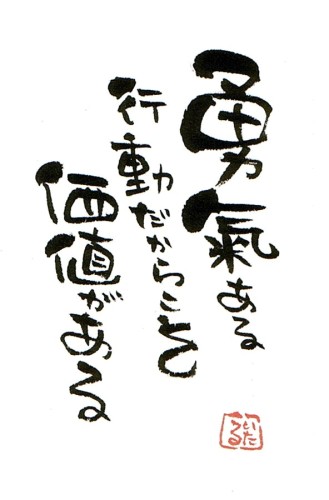 勇氣ある
行動だからこそ
価値がある